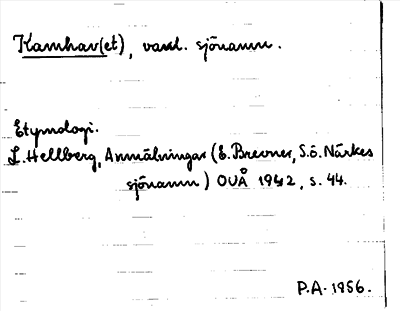 Kamhav(et), vanl. sjönamn.
Etymologi.
L. Hellberg, Anmälningar (E. Brevner, S.ö. Närkes
sjönamn) OUÅ 1942, s. 44.
P.A. 1956.